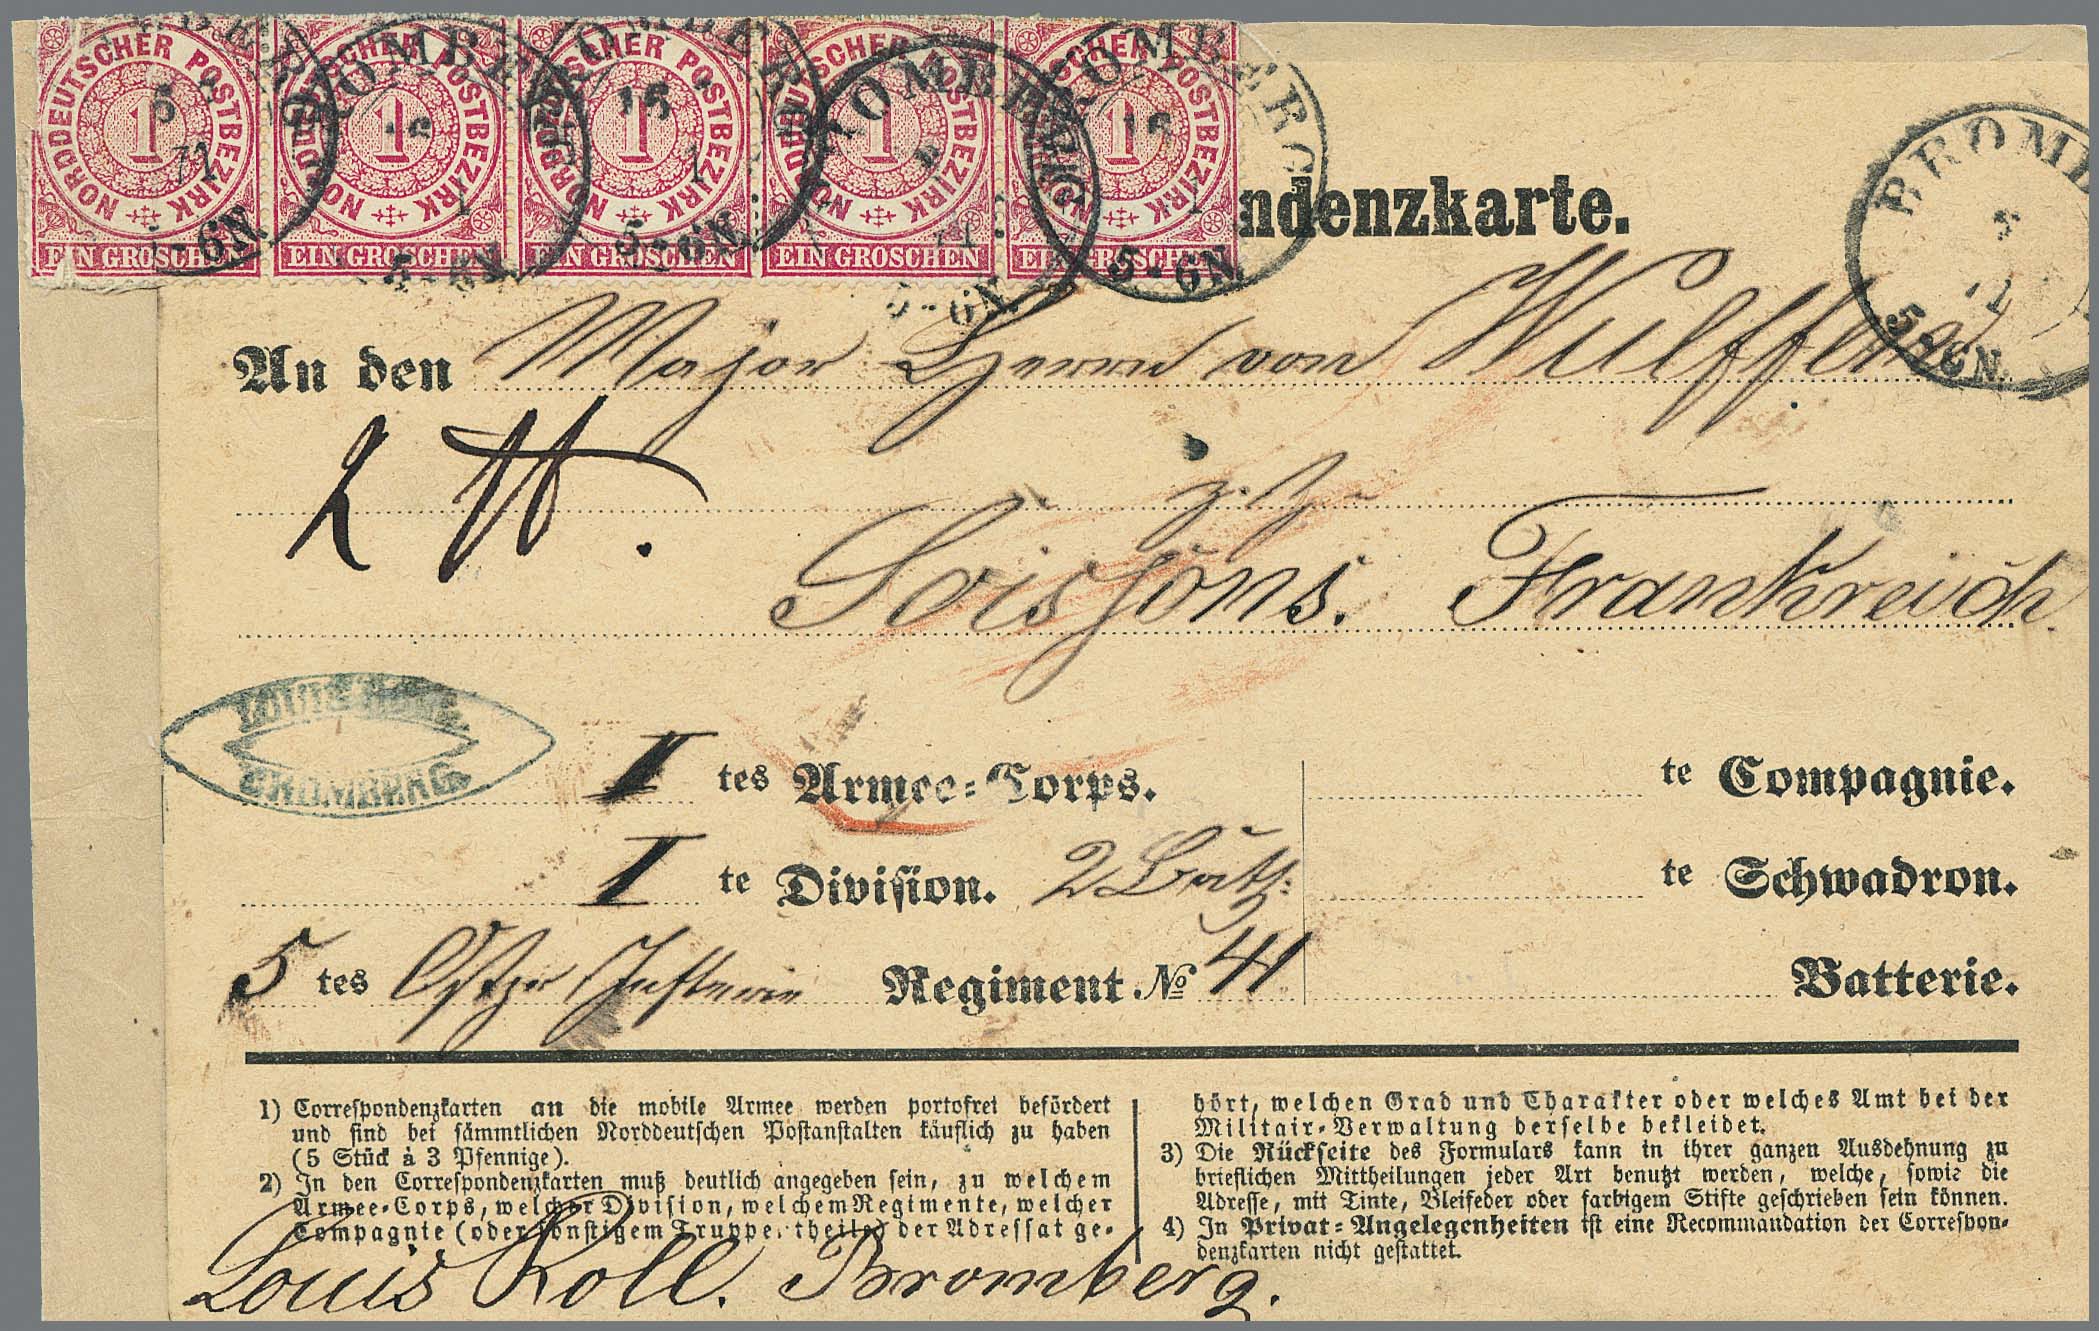 NORDDEUTSCHER POSTBEZIRK 1 EIN GROSCHEN
NORDDEUTSCHER POSTBEZIRK 1 EIN GROSCHEN
NORDDEUTSCHER POSTBEZIRK 1 EIN GROSCHEN
NORDDEUTSCHER POSTBEZIRK 1 EIN GROSCHEN
NORDDEUTSCHER POSTBEZIRK 1 EIN GROSCHEN
BROMBERG
5-6N
ndenzkarte.
BROMB
5
71
5-6N.
An den Major Herrn von Wulffen
2 ℔.
z. Z.
Soissons. Frankreich.
LOUIS
BROMBERG.
I tes Armee-Corps.
te Compagnie.
I te Division. 2 Batl:
te Schwadron.
5 tes Ostpr Inftrie Regiment № 41
Batterie.
1) Correspondenzkarten an die mobile Armee werden portofrei befördert
und sind bei sämmtlichen Norddeutschen Postanstalten käuflich zu haben
(5 Stück à 3 Pfennige).
2) In den Correspondenzkarten muß deutlich angegeben sein, zu welchem
Armee-Corps, welcher Division, welchem Regimente, welcher
Compagnie (oder sonstigem Truppentheile) der Adressat ge-
hört, welchen Grad und Charakter oder welches Amt bei der
Militair-Verwaltung derselbe bekleidet.
3) Die Rückseite des Formulars kann in ihrer ganzen Ausdehnung zu
brieflichen Mittheilungen jeder Art benutzt werden, welche, sowie die
Adresse, mit Tinte, Bleifeder oder farbigem Stifte geschrieben sein können.
4) In Privat-Angelegenheiten ist eine Recommandation der Correspon-
denzkarten nicht gestattet.
Louis Roll. Bromberg.